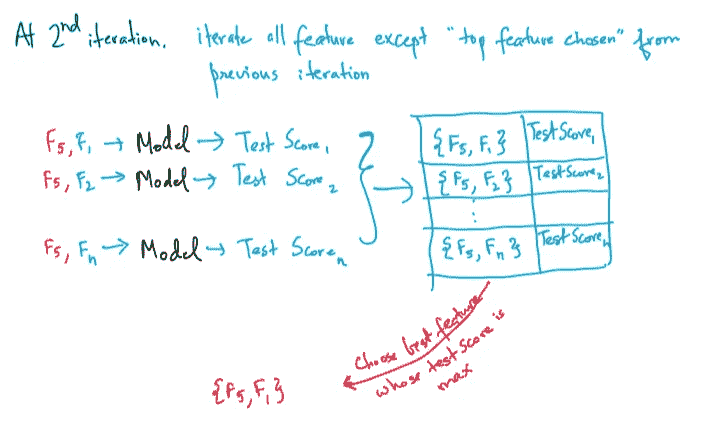 At 2nd iteration. iterate all feature except "top feature chosen" from
previous iteration
F5, F1 → Model → Test Score1
F5, F2 → Model → Test Score2
F5, Fn → Model → Test Scoren
{F5, F1} TestScore1
{F5, F2} TestScore2
⋮
{F5, Fn} TestScoren
Choose best feature
whose test score is
max
{F5, F1}